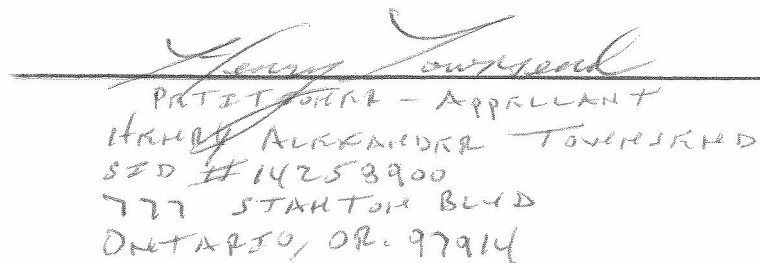 Henry Townsend
PETITIONER - APPELLANT
HENRY ALEXANDER TOWNSEND
SID #14253900
777 STANTON BLVD
ONTARIO, OR. 97914